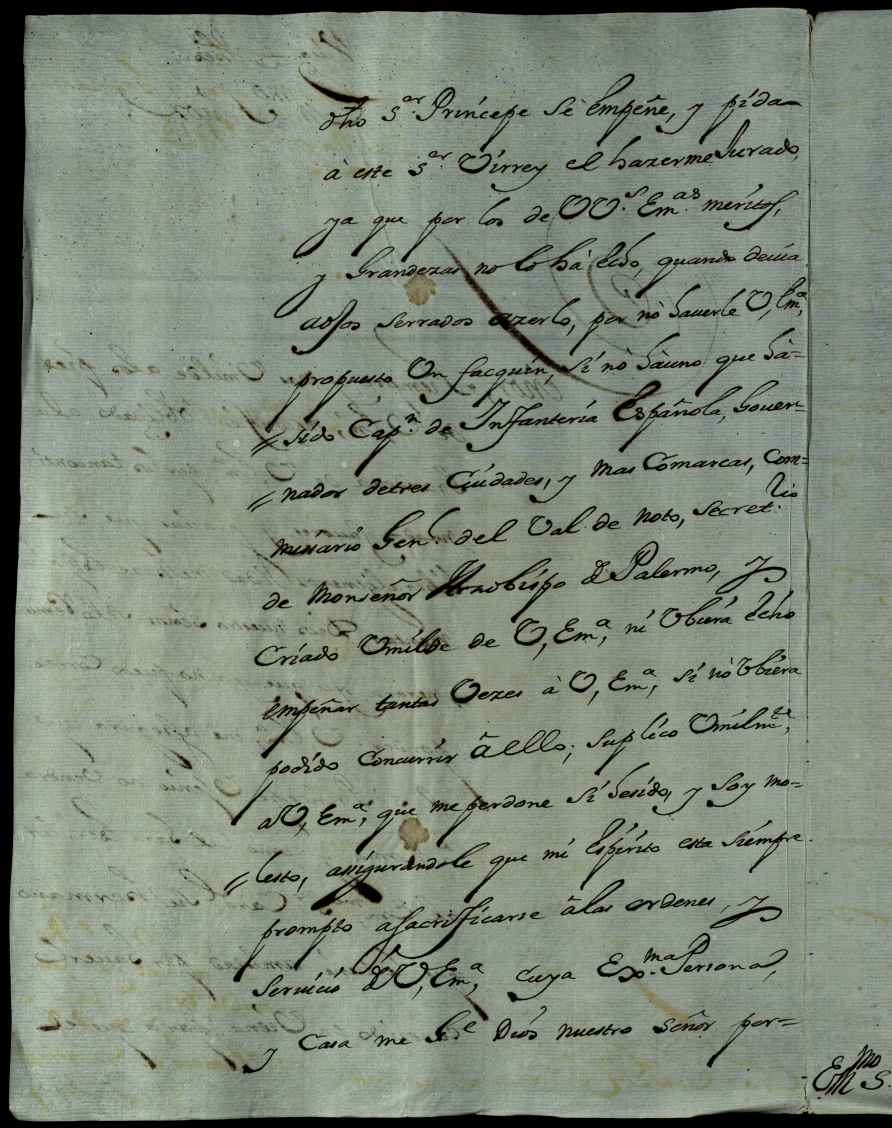 dho S.ᵒʳ Príncepe sè Empeñe, y pída
à este S.ᵒʳ Virrey el hazerme Jurado,
ya que por los de VV.ˢ Em.ᵃˢ meritos,
y Grandezas no lo hà Echo, quando deuia
aojos serrados azerlo, por nò hauerle V, Em.ᵃ,
propuesto Un facquin, sí nò hàuno que hà=
=sido Cap.ⁿ de Infanteria Española, Gouer=
=nador detres Ciúdades, y mas Comarcas, Com=
missario Gen.ˡ del Val de noto, Secret.ʳⁱᵒ
de Monseñor Arzobispo D Palermo, y
Criado Umilde de V, Em.ᵃ, ni Ubiera Echo
empeñar tantas Vezes à V, Em.ᵃ, sí nò Ubiera
podído Concurrir à ello; suplico Umilm.ᵗᵉ,
aV, Em.ᵃ, que me perdone sí hesido, y soy mo=
=lesto, assigurandole que mi Espírito esta siémpre
prompto asacrificarse àlas ordenes, y
Seruicio dV, Em.ᵃ, cuya Ex.ᵐᵃ Persona,
y Casa me G.ᵉ Dios nuestro Señor por=
Em.ᵐᵒ S.